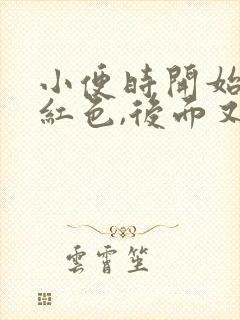 小便時開始
紅色,後而又
雲霄笙